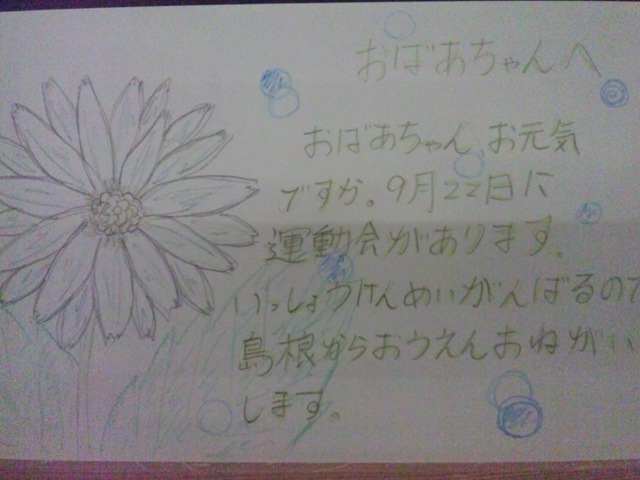 おばあちゃんへ
おばあちゃん、お元気
ですか。9月22日に
運動会があります。
いっしょうけんめいがんばるので
島根からおうえんおねがい
します。